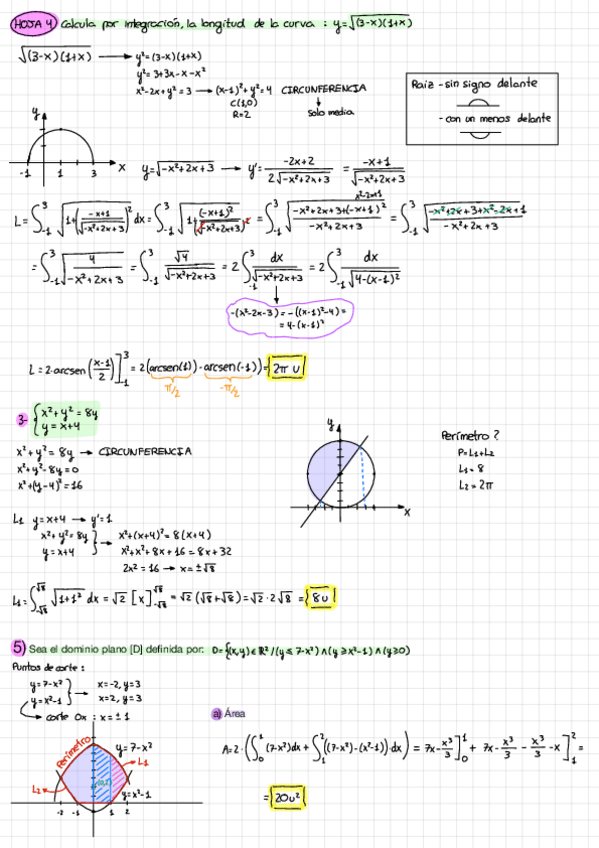 HOJA 4) Calcula por integración, la longitud de la curva : y=√(3-x)(1+x)
√(3-x)(1+x) → y²=(3-x)(1+x)
y²=3+3x-x-x²
x²-2x+y²=3 → (x-1)²+y²=4 CIRCUNFERENCIA
C(1,0)
R=2
↓
solo media
Raiz - sin signo delante
- con un menos delante
y
-1 1 3 x
y=√-x²+2x+3 → y'= -2x+2 / 2√-x²+2x+3 = -x+1 / √-x²+2x+3
x²-2x+1
L=∫₋₁³ √1+(-x+1/√-x²+2x+3)² dx = ∫₋₁³ √1+(-x+1)²/(√-x²+2x+3)² = ∫₋₁³ √-x²+2x+3+(-x+1)²/-x²+2x+3 = ∫₋₁³ √-x²+2x+3+x²-2x+1/-x²+2x+3
=∫₋₁³ √4/-x²+2x+3 = ∫₋₁³ √4/√-x²+2x+3 = 2∫₋₁³ dx/√-x²+2x+3 = 2∫₋₁³ dx/√4-(x-1)²
-(x²-2x-3)=-((x-1)²-4)=
= 4-(x-1)²
L=2·arcsen(x-1/2)]₋₁³ = 2(arcsen(1)-arcsen(-1))= 2π u
π/2 -π/2
3- { x²+y²=8y
y=x+4
x²+y²=8y → CIRCUNFERENCIA
x²+y²-8y=0
x²+(y-4)²=16
y
x
Perímetro?
P=L₁+L₂
L₁=8
L₂=2π
L₁ y=x+4 → y'=1
x²+y²=8y
y=x+4 } → x²+(x+4)²=8(x+4)
x²+x²+8x+16=8x+32
2x²=16 → x=±√8
L₁=∫₋√8^√8 √1+1² dx = √2 [x]₋√8^√8 = √2(√8+√8)=√2·2√8 = 8u
5) Sea el dominio plano [D] definida por: D={(x,y)∈ℝ²/(y≤7-x²)∧(y≥x²-1)∧(y≥0)
Puntos de corte:
y=7-x²
y=x²-1 } → x=-2,y=3
x=2,y=3
→ corte Ox: x=±1
a) Área
A=2·(∫₀¹(7-x²)dx+∫₁²((7-x²)-(x²-1))·dx) = 7x-x³/3]₀¹ + 7x-x³/3-x³/3-x]₁² =
= 20u²
Perímetro
y=7-x²
L₁
L₂
y=x²-1
-2 -1 1 2